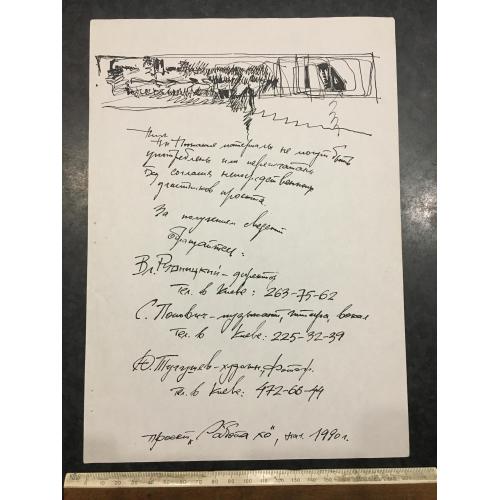 материалы не могут быть
употреблены или перепечатаны
без согласия непосредственных
участников проекта
За получением сведений
обращайтесь:
Вл. – директор
Тел. в Киеве: 263-75-62
С. Попович – музыкант, гитара, вокал
Тел. в Киеве: 225-32-39
Ю. – художн., фотогр.
Тел. в Киеве: 472-68-44
проект „Работа хо", 1990 г.